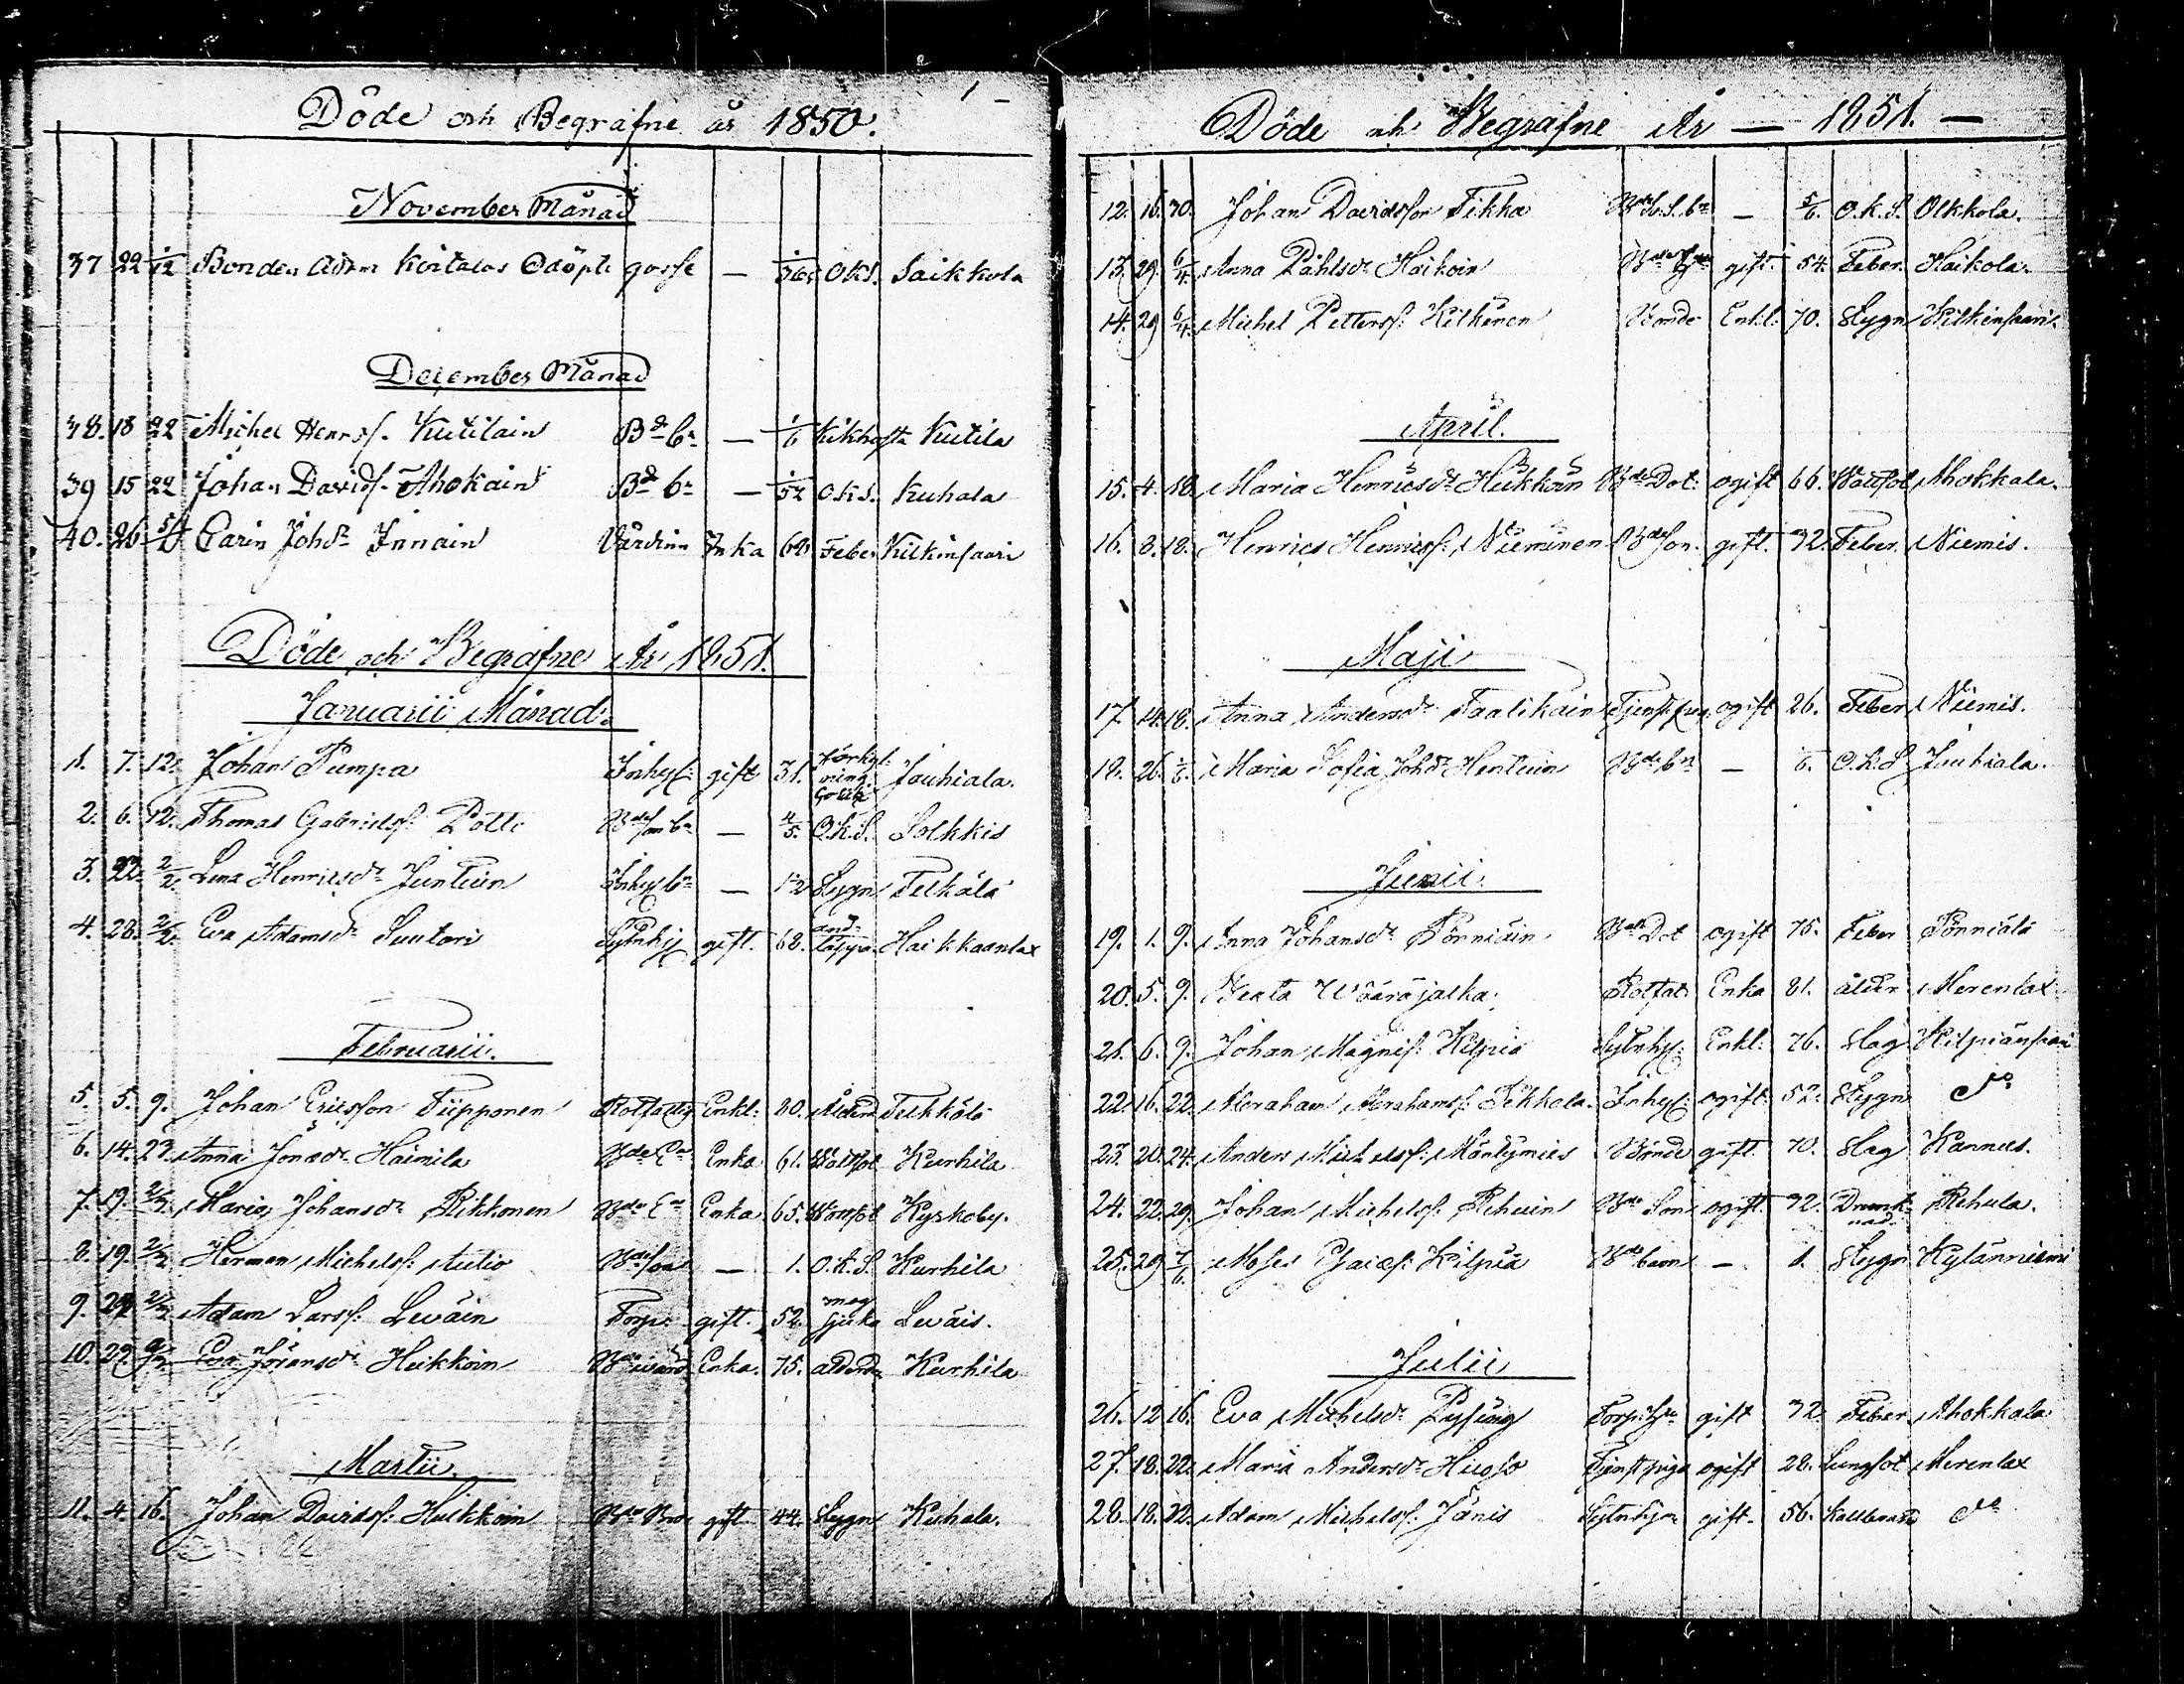 Döde och Begrafne år 1850.
November Månad
37 22 1/12 Bonden Adam Koitalas Odöpte gosse — 1/365 O.K.S. Saikkola
December Månad
38. 18 22 Michel Henrss. Kutilain Bde bn — 1/6 Kikhosta Kutila
39 15 22 Johan Davids. Ahokain Bde bn — 1/52 O.K.S. Kuhala
40. 26 5/1 Carin Johdr Innain Värdinn Enka 68 Feber Kilkinsaari
Döde och Begrafne År 1851.
Januarii Månad.
1. 7. 12. Johan Pumpa Inhys: gift 31. Jouhiala.
2. 6. 12. Thomas Gabrielss: Potti Bdeson bn — 4/5. O.K.S. Solkkis
3. 22. 2/2. Lena Henricsdr Juntuin Inhys bn — 12 Stygn Teikälä
4. 28. 2/2. Eva Adamsdr Suutari gift. 68. Haikkaanlax
Februarii.
5. 5. 9. Johan Ericsson Tiipponen Rotfattig Enkl: 80. Ålderd. Teikkälä
6. 14. 23. Anna Jonædr Häinilä Bde Ea Enka 61. Wattsot Kurhila
7. 19. 2/3. Maria Johansdr Rikkonen Bde Ea Enka 65. Wattsot Kyrkoby.
8. 19. 2/3 Herman Michelss: Autio Bde son — 1. O.K.S. Kurhila
9. 24. 2/3 Adam Larss: Leväin Torp: gift. 52. mag sjuka Leväis.
10. 29. 9/3. Eva Göransdr Heikkoin Enka. 75. ålderdn Kurhila
Martii.
11. 4. 16. Johan Davidss: Huikkoin gift 44. Stygn Kuhala.
Döde och Begrafne År — 1851. —
12. 16. 30. Johan Davidsson Tikka Bde S. bn — 5/6. O.K.S. Olkkola.
13. 29. 6/4. Anna Påhlsdr Haikoin gift. 54. Feber. Haikola.
14. 29 6/4. Michel Petterss: Kilkinen Bonde Enkl: 70. Stygn Kilkinsaari.
April.
15. 4. 18. Maria Henricsdr Huikkoin Bde Dot: ogift 66. Wattsot Ahokkala.
16. 8. 18. Henrics Henricss: Nieminen Bdeson. gift. 32. Feber. Niemis.
Maji
17. 14. 18. Anna Andersdr Taalikain Tjenst pig. ogift 26. Feber Niemis.
18. 26. 1/6. Maria Sofia Johdr Hentuin Bde bn — O.K.S Jouhiala.
Junii.
19. 1. 9. Anna Johansdr Pönniäin Bde Dot ogift 75. Feber Pönniälä
20. 5. 9. Beata Wäärajalka. Rotfat: Enka 81. ålder Merenlax
21. 6. 9. Johan Magniss: Kilpiä Enkl: 76. Slag Kilpiänsaari
22. 16. 22. Abraham Abrahamss: Pekkola. Inhys: ogift 52. Stygn Do
23. 20. 24. Anders Michelss: Mäntyinies Bonde gift 70. Slag Kannus.
24. 22. 29. Johan Michelss: Rehuin Bde Son ogift. 32. Drunknad. Rehula.
25. 29 7/6. Moses Esaiæs: Kilpiä Bde barn — 1. Stygn Kylänniemi
Julii
26. 12 16. Eva Michelsdr Pysing gift 32. Feber Ahokkala
27. 18. 22. Maria Andersdr Hugso Tjenstpiga ogift 28. Lungsot Merenlax
28. 18. 22. Adam Michelss. Jänis gift. 56. Kallbrand Do